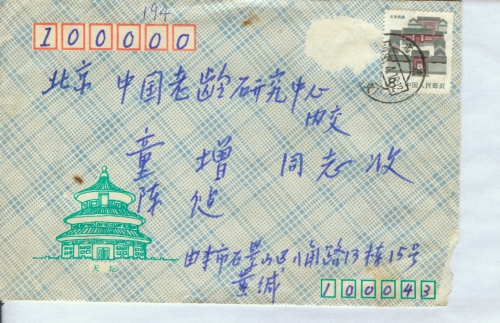 194
100000
北京 中国老龄研究中心
内交
童增 同志收
陈
中国人民邮政
天坛
本市石景山区八角路13栋15号
黄缄
100043